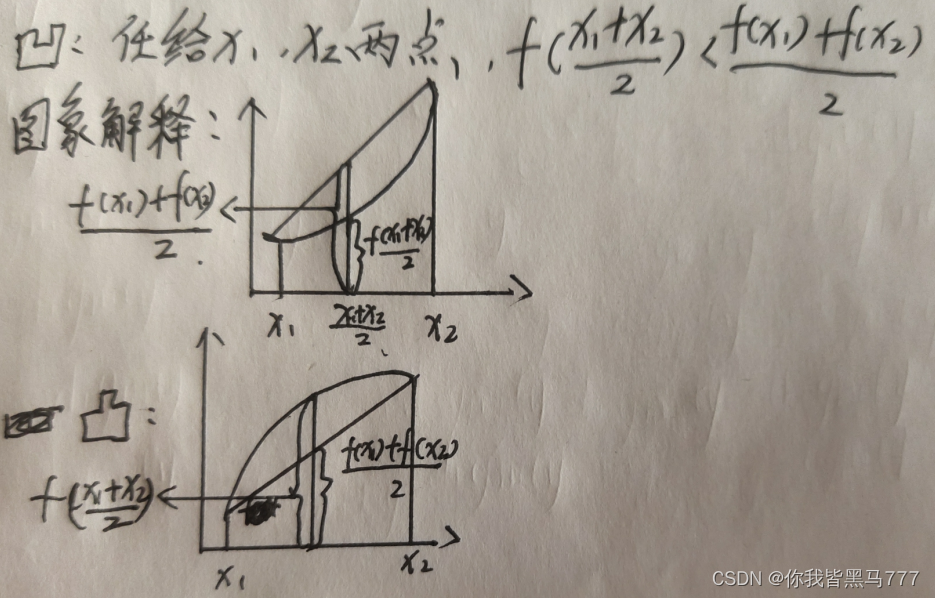 凹: 任给x₁、x₂两点, f((x₁+x₂)/2) < (f(x₁)+f(x₂))/2
图象解释:
(f(x₁)+f(x₂))/2
f(x₁+x₂)/2
x₁ (x₁+x₂)/2 x₂
凸:
(f(x₁)+f(x₂))/2
f((x₁+x₂)/2)
x₁ x₂
CSDN @你我皆黑马777